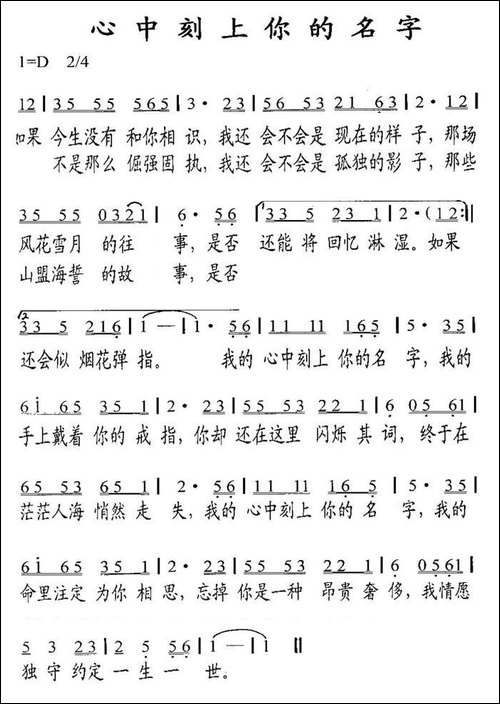 心中刻上你的名字
1=D 2/4
12 | 35 55 565 | 3· 23 | 56 53 21 63 | 2· 12 |
如果 今生没有 和你相 识，我还 会不会是 现在的样 子，那场
不是那么 倔强固 执，我还 会不会是 孤独的影 子，那些
35 55 0321 | 6· 56 | 33 5 23 1 | 2· (12 :||
风花雪月 的往 事，是否 还能 将 回忆 淋 湿。如果
山盟海誓 的故 事，是否
33 5 216 | 1 — | 1· 56 | 11 11 165 | 5· 35 |
还会似 烟花弹 指。 我的 心中刻上 你的名 字，我的
6i 65 35 1 | 2· 23 | 55 53 22 1 | 6 05 61 |
手上戴着 你的 戒 指，你却 还在这里 闪烁 其 词，终于在
65 53 65 5 | 2· 56 | 11 11 16 5 | 5· 35 |
茫茫人海 悄然 走 失，我的 心中刻上 你的 名 字，我的
6i 65 35 1 | 2· 23 | 55 53 22 1 | 6 0561 |
命里注定 为你 相 思，忘掉 你是一种 昂贵 奢 侈，我情愿
5 3 23 | 2 5 56 | 1 — | 1 ||
独 守 约定 一 生 一 世。